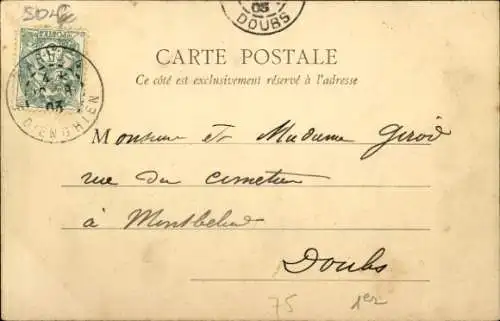 03
DOUBS
CARTE POSTALE
Ce côté est exclusivement réservé à l'adresse
03
D'ENGHIEN
Monsieur et Madame Girod
rue du cimetière
à Montbeliard
Doubs
75 1er